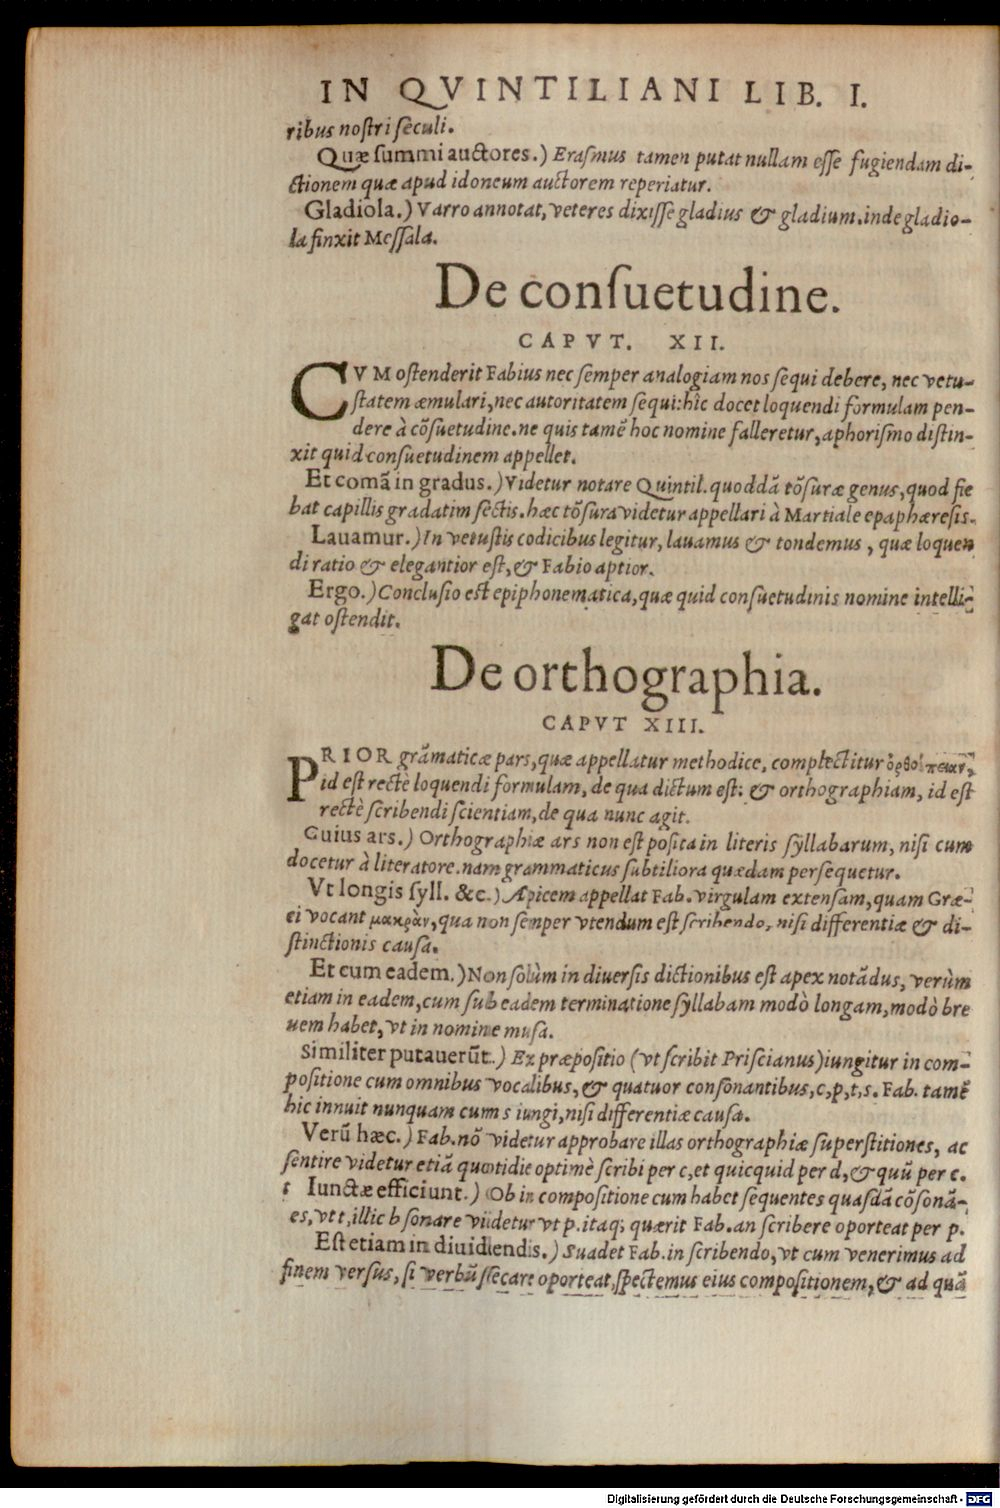 IN QVINTILIANI LIB. I.
ribus noſtri ſeculi.
Quæ ſummi auctores.) Eraſmus tamen putat nullam eſſe fugiendam di-
ctionem quæ apud idoneum auctorem reperiatur.
Gladiola.) Varro annotat, veteres dixiſſe gladius & gladium. inde gladio-
la finxit Meſſala.
De conſuetudine.
CAPVT. XII.
CVM oſtenderit Fabius nec ſemper analogiam nos ſequi debere, nec vetu-
ſtatem æmulari, nec autoritatem ſequi: hîc docet loquendi formulam pen-
dere à cõſuetudine. ne quis tamẽ hoc nomine falleretur, aphoriſmo diſtin-
xit quid conſuetudinem appellet.
Et comã in gradus.) Videtur notare Quintil. quoddã tõſuræ genus, quod fie
bat capillis gradatim ſectis. hæc tõſura videtur appellari à Martiale epaphæreſis.
Lauamur.) In vetuſtis codicibus legitur, lauamus & tondemus, quæ loquen
di ratio & elegantior eſt, & Fabio aptior.
Ergo.) Concluſio eſt epiphonematica, quæ quid conſuetudinis nomine intelli-
gat oſtendit.
De orthographia.
CAPVT XIII.
PRIOR grãmaticæ pars, quæ appellatur methodice, complectitur
id eſt rectè loquendi formulam, de qua dictum eſt: & orthographiam, id eſt
rectè ſcribendi ſcientiam, de qua nunc agit.
Cuius ars.) Orthographiæ ars non eſt poſita in literis ſyllabarum, niſi cum
docetur à literatore. nam grammaticus ſubtiliora quædam perſequetur.
Vt longis ſyll. &c.) Apicem appellat Fab. virgulam extenſam, quam Græ-
ci vocant μακρὰν, qua non ſemper vtendum eſt ſcribendo, niſi differentiæ & di-
ſtinctionis cauſa.
Et cum eadem.) Non ſolùm in diuerſis dictionibus eſt apex notãdus, verùm
etiam in eadem, cum ſub eadem terminatione ſyllabam modò longam, modò bre
uem habet, vt in nomine muſa.
Similiter putauerũt.) Ex præpoſitio (vt ſcribit Priſcianus) iungitur in com-
poſitione cum omnibus vocalibus, & quatuor conſonantibus, c, p, t, s. Fab. tamẽ
hic innuit nunquam cum s iungi, niſi differentiæ cauſa.
Verũ hæc.) Fab. nõ videtur approbare illas orthographiæ ſuperſtitiones, ac
ſentire videtur etiã quotidie optimè ſcribi per c, et quicquid per d, & quũ per c.
Iunctæ efficiunt.) Ob in compoſitione cum habet ſequentes quaſdã cõſonã-
es, vt t, illic b ſonare videtur vt p. itaq; quærit Fab. an ſcribere oporteat per p.
Eſt etiam in diuidendis.) Suadet Fab. in ſcribendo, vt cum venerimus ad
finem verſus, ſi verbũ ſecare oporteat, ſpectemus eius compoſitionem, & ad quã
Digitalisierung gefördert durch die Deutsche Forschungsgemeinschaft - DFG